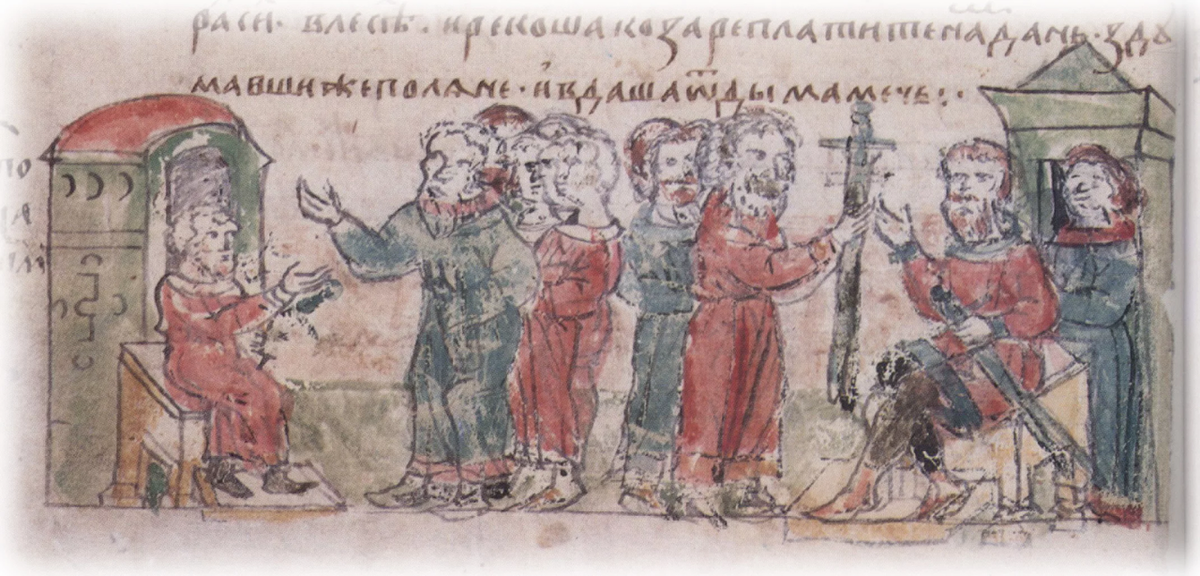 расѝ· влесѣ· ирекошакозареплатитенаданьꙿ·здꙋ
мавшижеполяне· ивдашаѿдымамечь:·